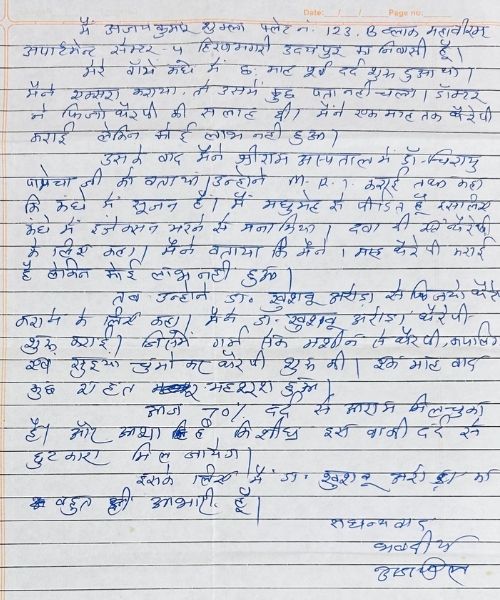 Date: / / Page no:
मैं अजय कुमार शुक्ला फ्लेट नं. 123. B ब्लाक महावीरम
अपार्टमेन्ट सेक्टर-५ हिरणमगरी उदयपुर का निवासी हूँ।
मेरे बाँये कंधे में छः माह पूर्व दर्द शुरू हुआ था।
मैंने एक्सरा कराया. तो उसमें कुछ पता नहीं चला। डॉक्टर
ने फिजो थैरेपी की सलाह दी। मैंने एक माह तक थैरेपी
कराई लेकिन कोई लाभ नहीं हुआ।
उसके बाद मैंने श्रीराम अस्पताल में डॉ-चिरायु
पामेचा जी को बताया। उन्होंने M.R.I. कराई तथा कहा
कि कंधे में सूजन है। मैं मधुमेह से पीडित हूँ इसलिए
कंधे में इंजेक्सन भरने से मना किया। दवा दी थैरेपी
के लिए कहा। मैंने बताया कि मैंने 1 माह थैरेपी कराई
है लेकिन कोई लाभ नहीं हुआ।
तब उन्होंने डा. खुशबू अरोडा से फिजयो थैरेपी
कराने के लिए कहा। मैंने डा. खुशबू अरोडा थैरेपी
शुरू कराई। जिसमें गर्म सेक मशीन से थैरेपी, कपालिंग
एवं सुइया चुभो कर थैरेपी शुरू की। एक माह बाद
कुछ राहत महशूश हुआ।
आज 70% दर्द से आराम मिल चुका
है। और आशा है कि शीघ्र इस बाकी दर्द से
छुटकारा मिल जायेगा।
इसके लिए मैं डा. खुशबू अरोडा का
बहुत ही आभारी हूँ।
सधन्यवाद
भवदीय